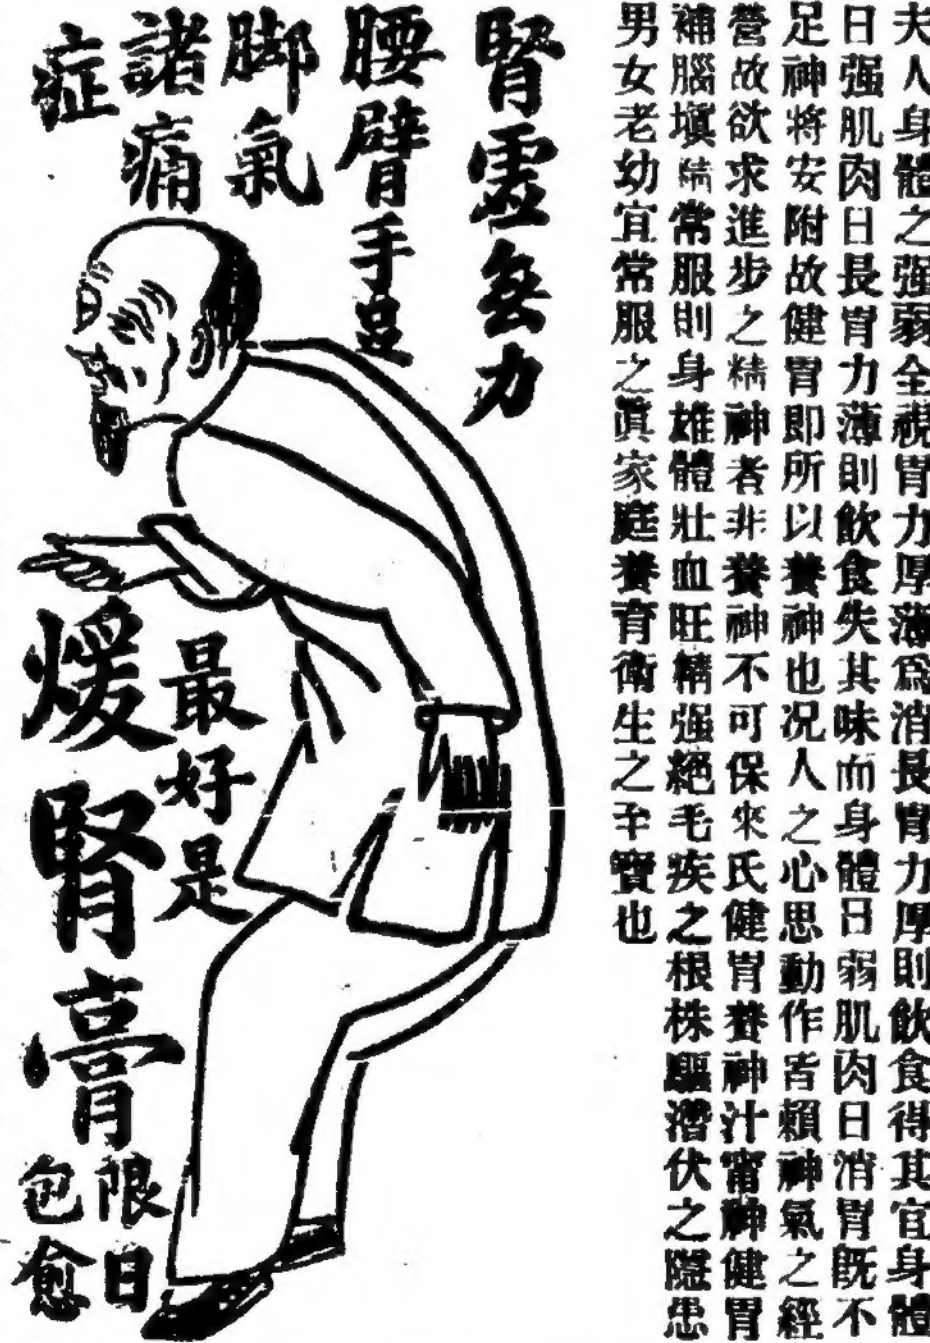 夫人身體之强弱全視胃力厚薄爲消長胃力厚則飲食得其宜身體
日强肌肉日長胃力薄則飲食失其味而身體日弱肌肉日消胃既不
足神將安附故健胃即所以養神也况人之心思動作皆賴神氣之經
營故欲求進步之精神者非養神不可保來氏健胃養神汁甯神健胃
補腦塡精常服則身雄體壯血旺精强絕毛疾之根株驅潛伏之隱患
男女老幼宜常服之眞家庭養育衛生之至寶也
腎虛無力
腰臂手足
脚氣
諸痛
症
最好是
煖腎膏
限日
包愈